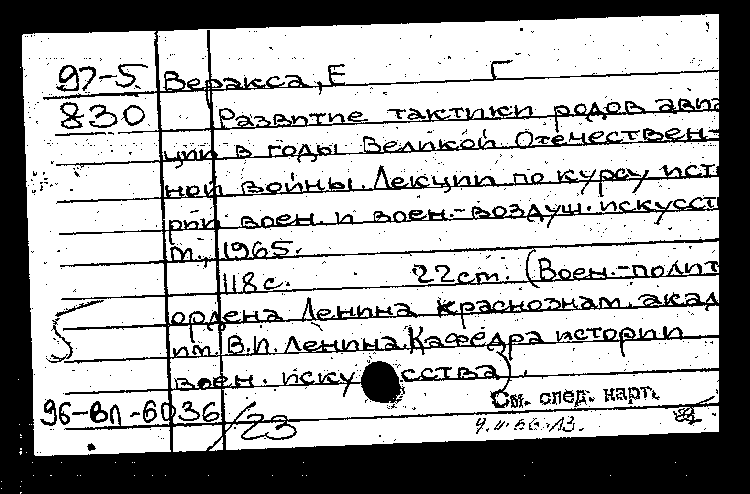 97-5 Веракса, Е Г
830 Развитие тактики родов авиа
ции в годы Великой Отечествен-
ной войны. Лекции по курсу ист
рии воен. и воен.-воздуш. искусст
М., 1965.
118 с. 22 см. (Воен.-полит
ордена Ленина краснознам. акад
им. В.И. Ленина. Кафедра истории
воен. искусства).
См. след. карт.
96-ВЛ-6036/23